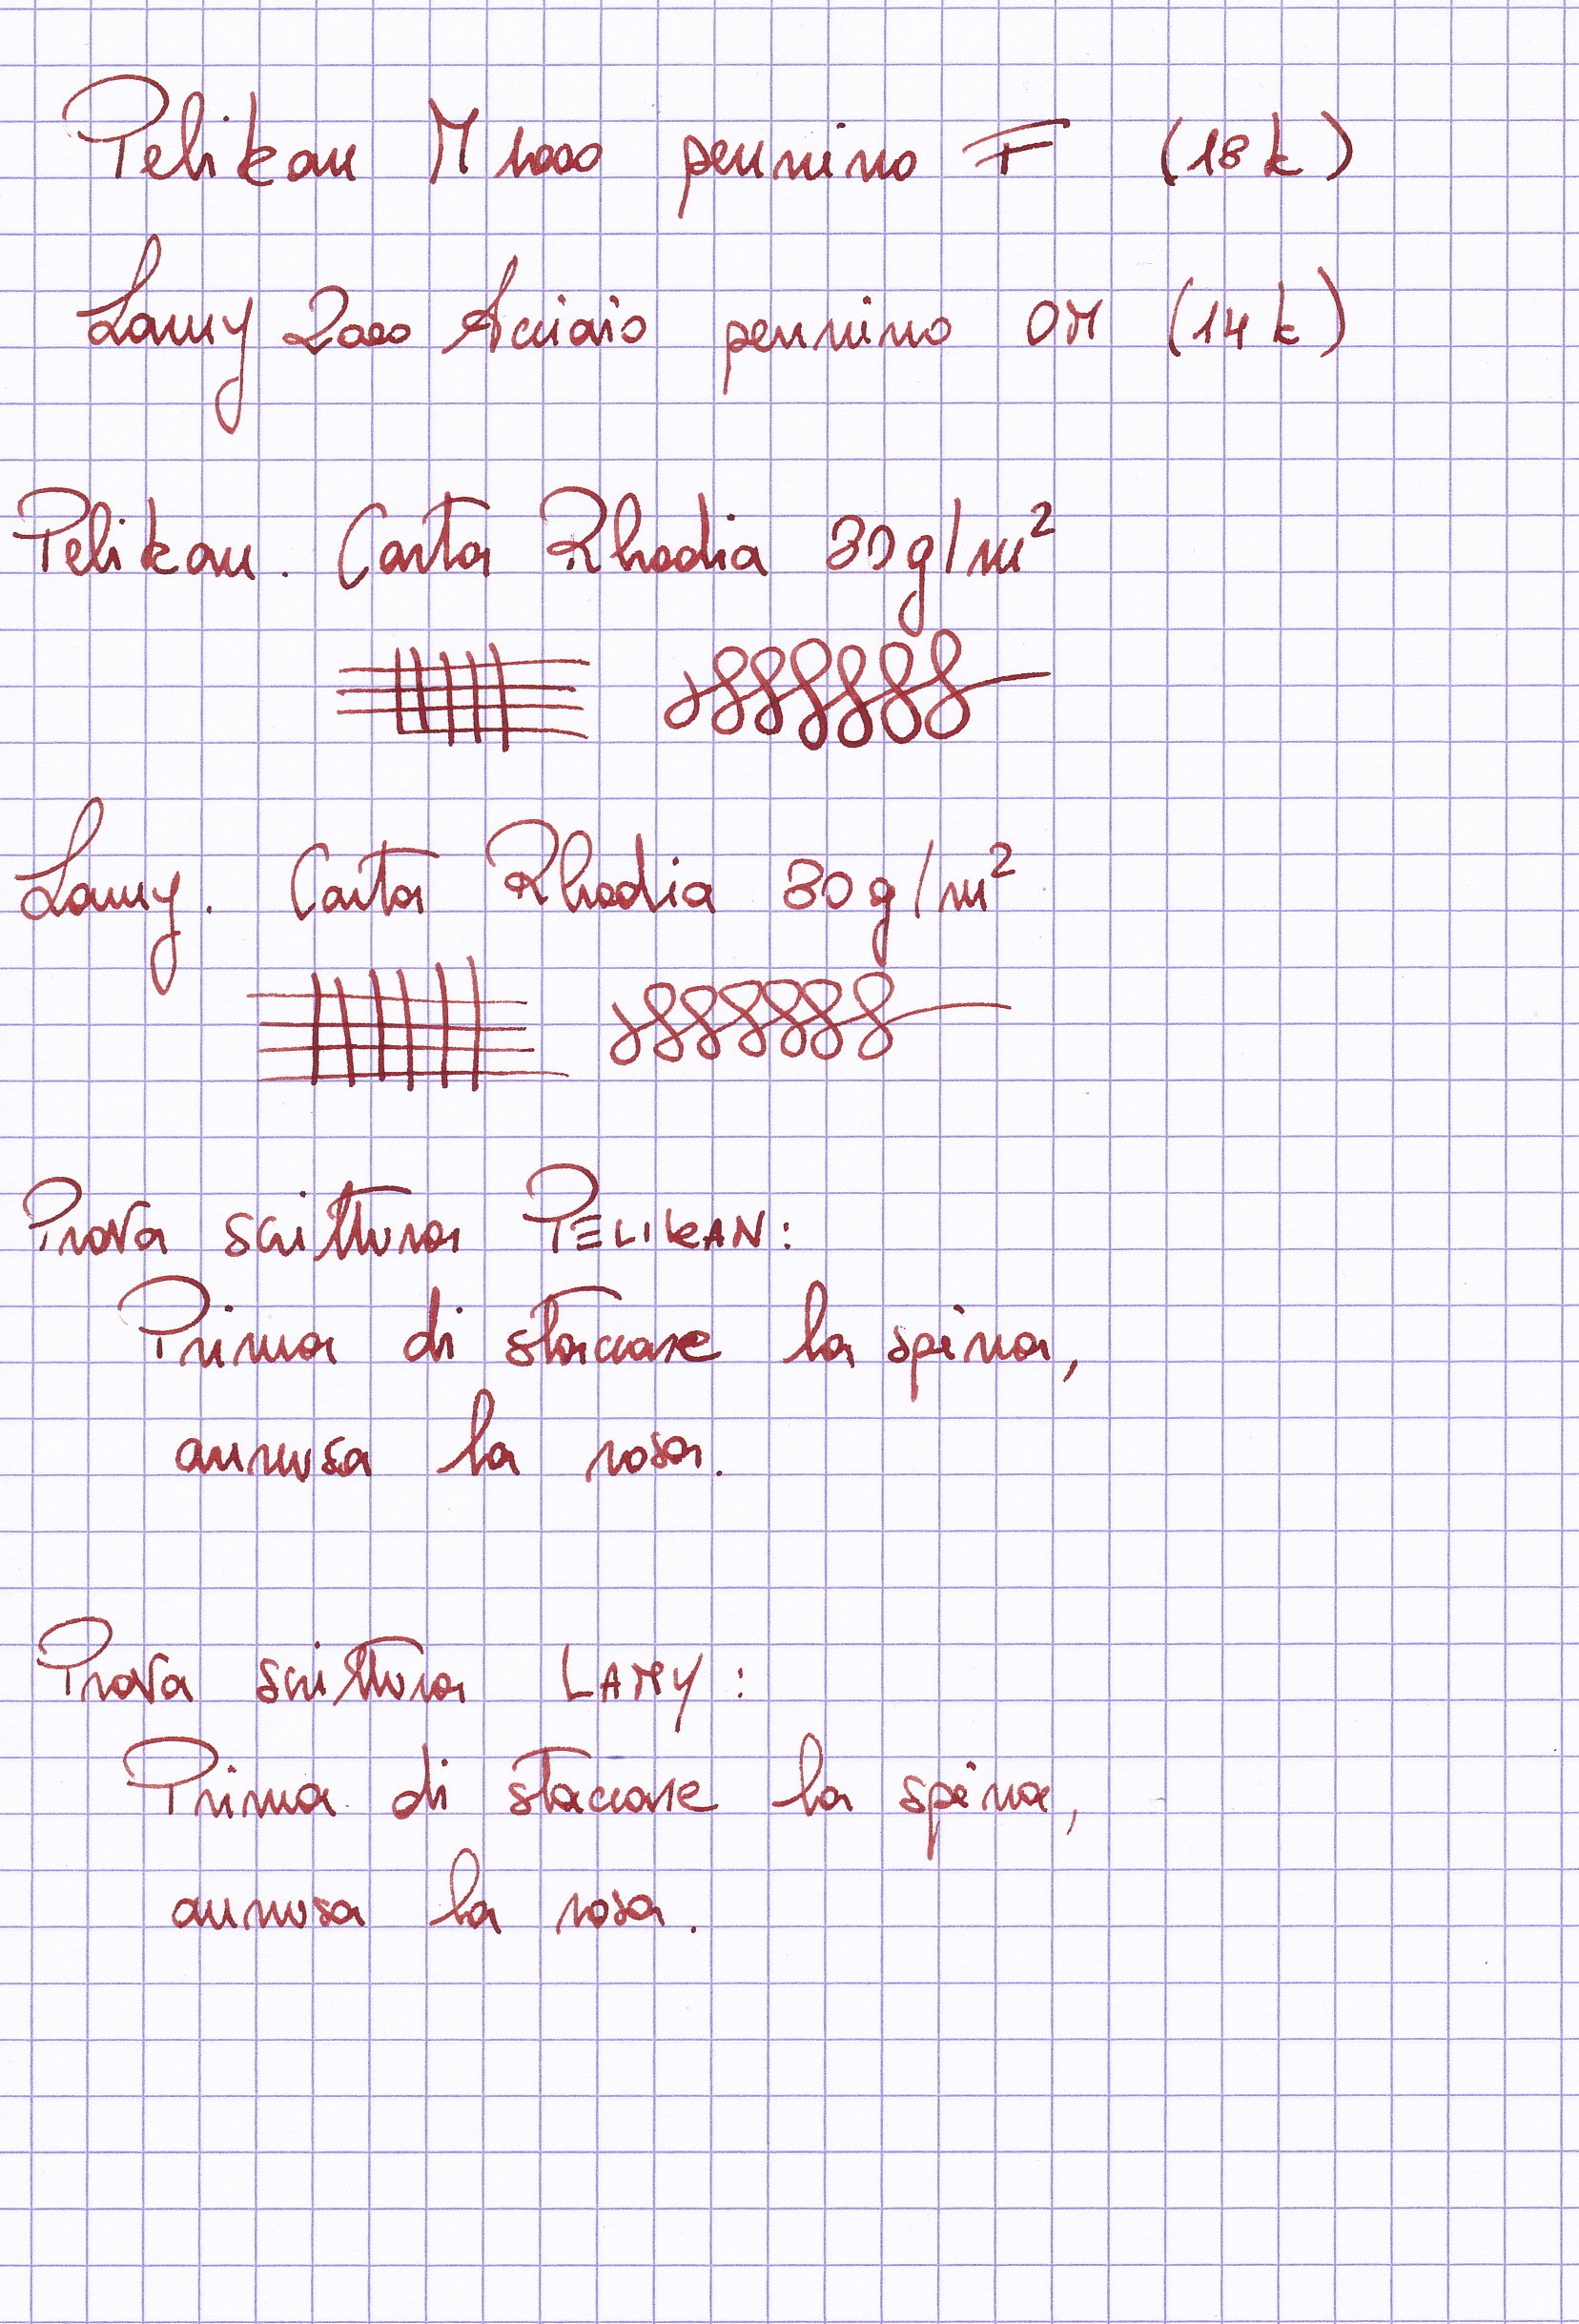 Pelikan M1000 pennino F (18k)
Lamy 2000 Acciaio pennino OM (14k)
Pelikan. Carta Rhodia 80g/m²
Lamy. Carta Rhodia 80g/m²
Prova scrittura PELIKAN:
Prima di staccare la spina,
annusa la rosa.
Prova scrittura LAMY:
Prima di staccare la spina,
annusa la rosa.